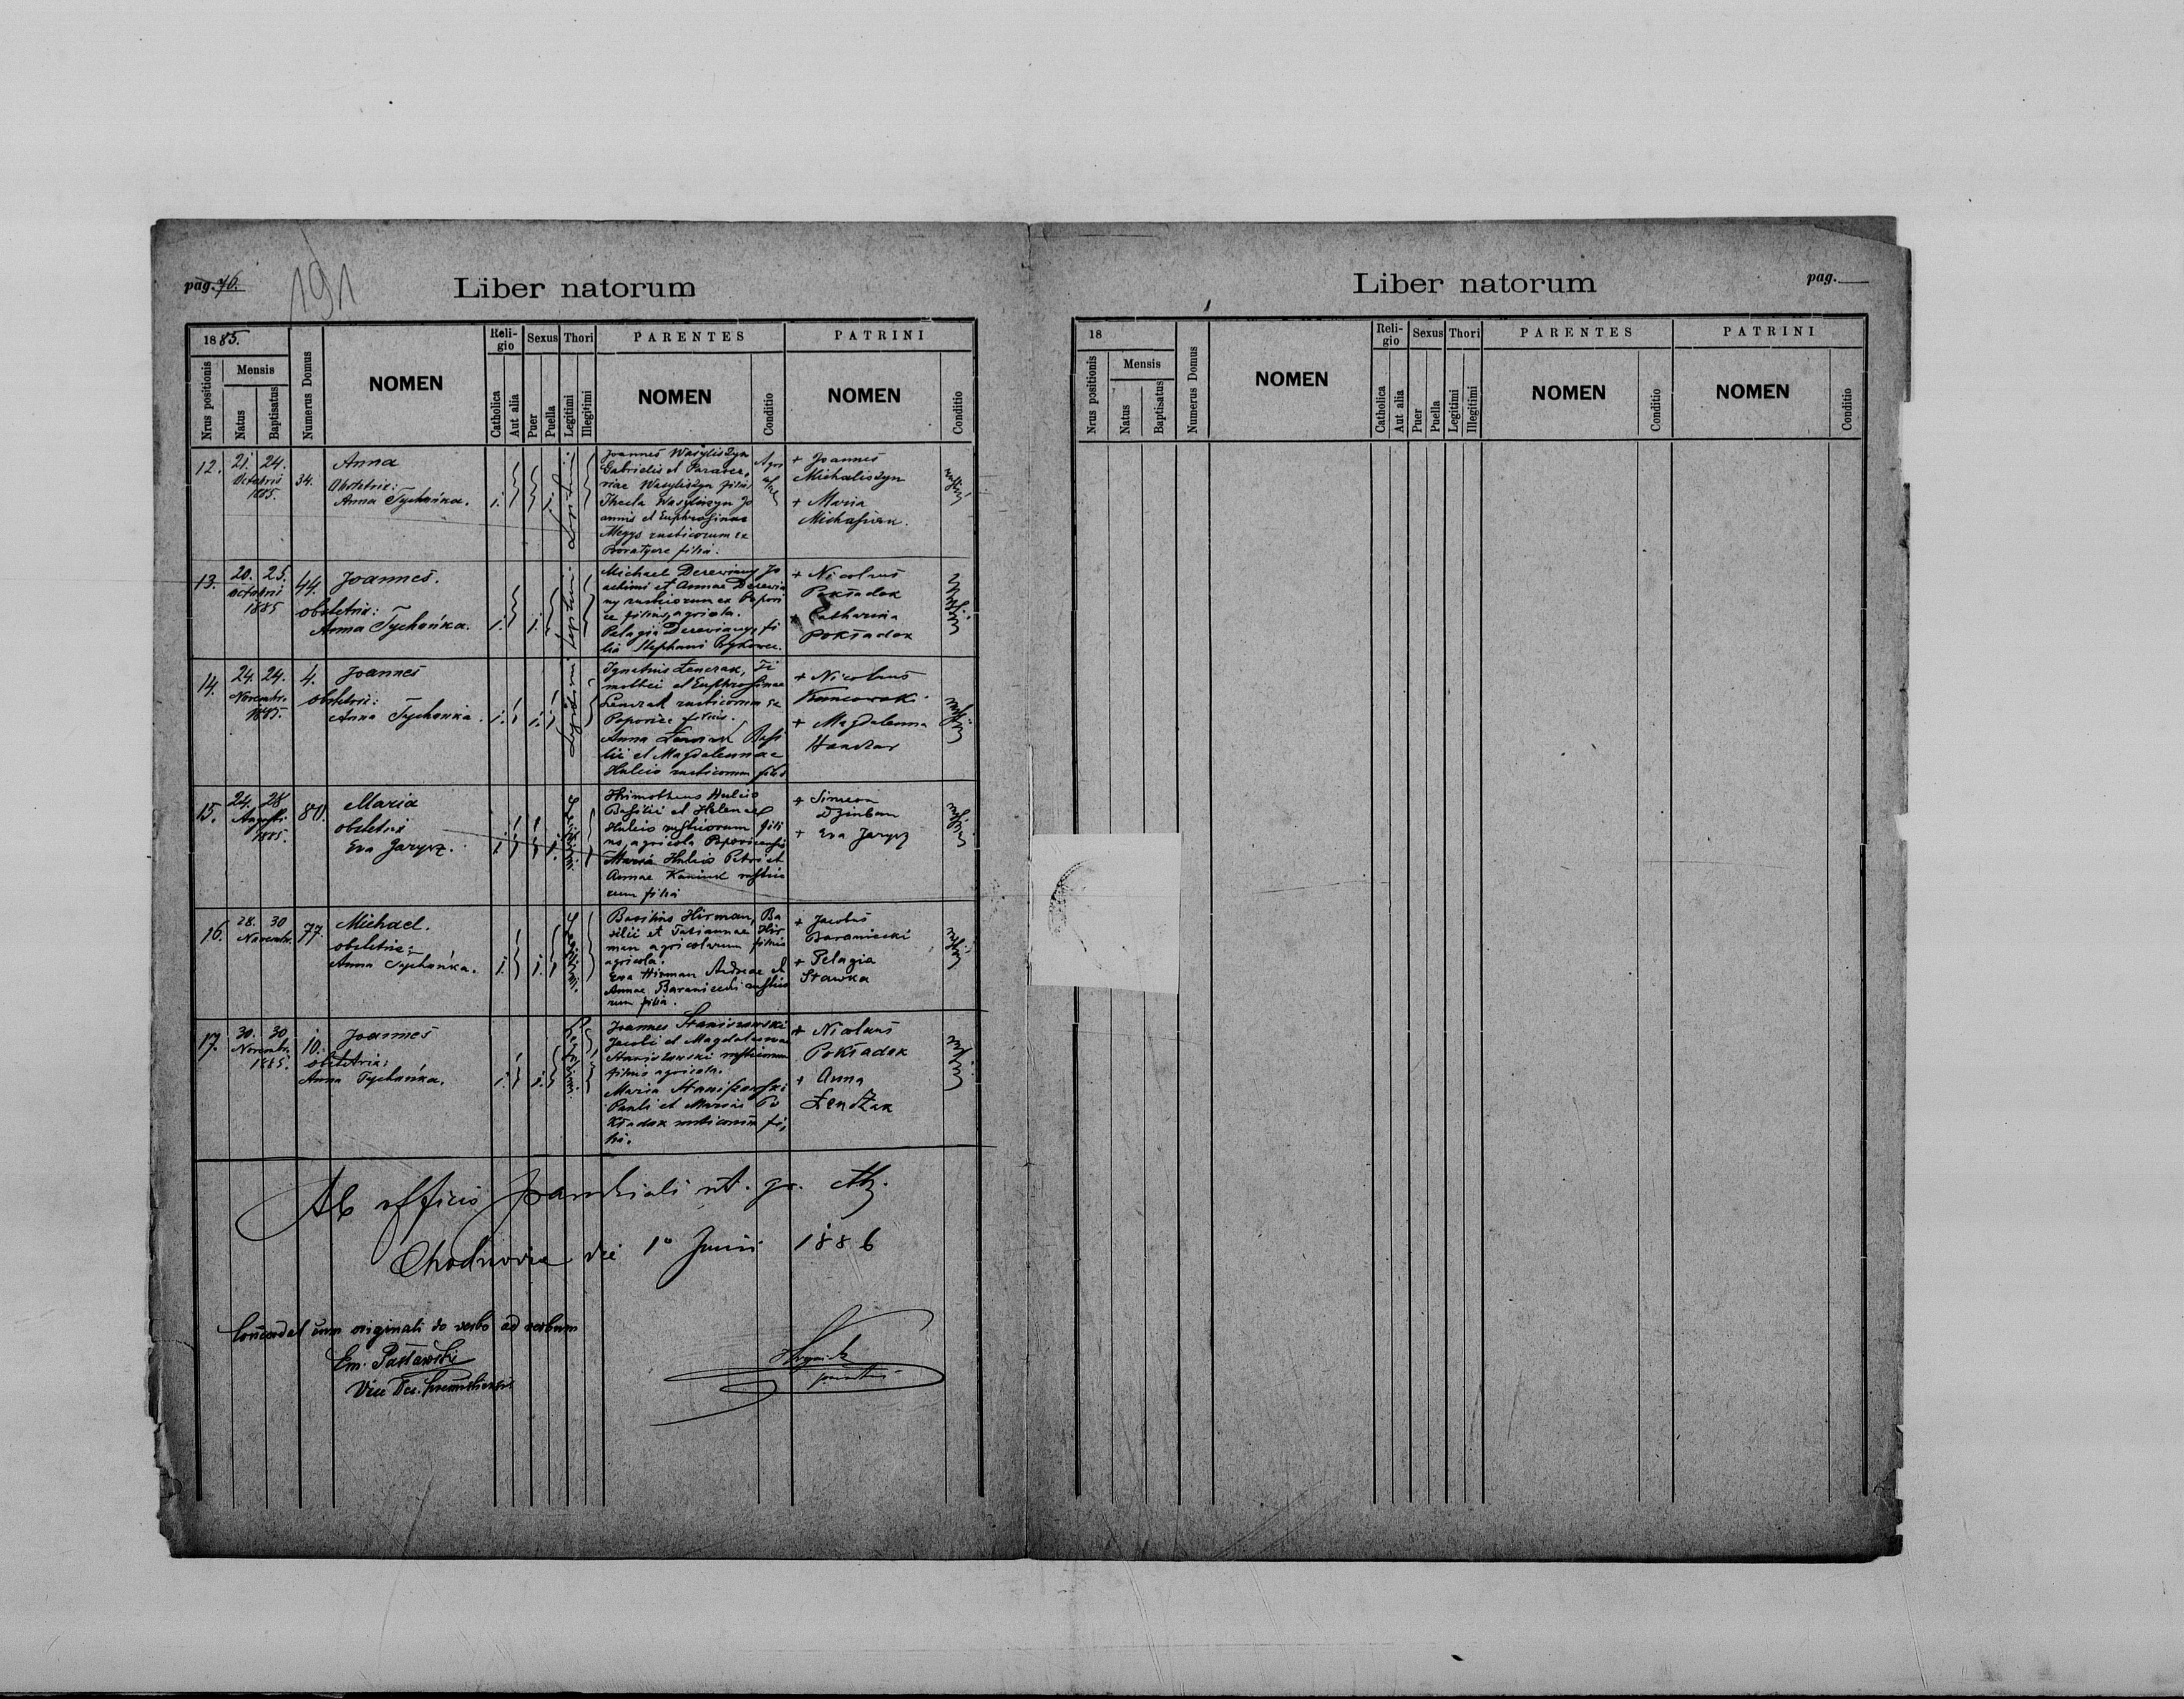 pag. 76.
191
Liber natorum
1885.
Nrus positionis
Mensis
Natus
Baptisatus
Numerus Domus
NOMEN
Religio
Catholica
Aut alia
Sexus
Puer
Puella
Thori
Legitimi
Illegitimi
PARENTES
NOMEN
Conditio
PATRINI
NOMEN
Conditio
12.
21. 24.
Octobris
1885.
34.
Anna
Obstetrix:
Anna Tychońka.
1.
1.
Legitimi
Joannes Wasyliszyn
Gabrielis et Parasce
viae Wasyliszyn filius,
Thecla Wasyliszyn Jo
annis et Euphrosinae
rusticorum ex
filia.
Agri
colae
+ Joannes
Michaliszyn
+ Maria
13.
20. 25.
octobri
1885
44.
Joannes.
obstetrix:
Anna Tychońka.
1.
1.
Legitimi
Michael Derewiany Jo
achimi et Annae Derewia
ny rusticorum ex Popovi
ce filius, agricola.
Pelagia Derewiany, fi
lia Stephani Bykowee.
+ Nicolaus
Pokładok
+ Catharina
Pokładok
14.
24. 24.
Novembr.
1885.
4.
Joannes
obstetrix:
Anna Tychońka.
1.
1.
Legitimi
Ignatius Łenczak, Ti
mothei et Euphrosinae
Łenczak rusticorum ex
Popovice filius.
Anna Basi
lii et Magdalennae
Hulcio rusticorum filia
+ Nicolaus
+ Magdalenna
15.
24. 28
Augusti
1885.
80.
Maria
obstetrix
Eva Jarysz.
1.
1.
Legitimi
Thimotheus Hulcio
Basilii et Helenae
Hulcio rusticorum fili
us, agricola Popovicensis
Maria Hulcio Petri et
Annae rustico
rum filia
+ Simeon
+ Eva Jarysz
16.
28. 30
Novembr.
77.
Michael.
obstetrix:
Anna Tychońka.
1.
1.
Legitimi.
Basilius Hirman, Ba
silii et Tatiannae Hir
man agricolarum filius
agricola.
Eva Hirman Andreae et
Annae Baraniecki rustico
rum filia.
+ Jacobus
Baraniecki
+ Pelagia
Stawka
17.
30. 30
Novembr.
1885.
10.
Joannes
obstetrix:
Anna Tychońka.
1.
1.
Legitimi
Joannes Staniszewski
Jacobi et Magdalennae
Staniszewski rusticorum
filius agricola.
Maria Staniszewski
Pauli et Mariae Po
kładok rusticorum fi,
lia.
+ Nicolaus
Pokładok
+ Anna
Łendzak
Ab officio parochiali rit. gr. cth.
Chodnovice die 1º Junii 1886
Concordat cum originali de verbo ad verbum
Em. Pasławski
Vice Dec.
Liber natorum
pag.
18
Nrus positionis
Mensis
Natus
Baptisatus
Numerus Domus
NOMEN
Religio
Catholica
Aut alia
Sexus
Puer
Puella
Thori
Legitimi
Illegitimi
PARENTES
NOMEN
Conditio
PATRINI
NOMEN
Conditio